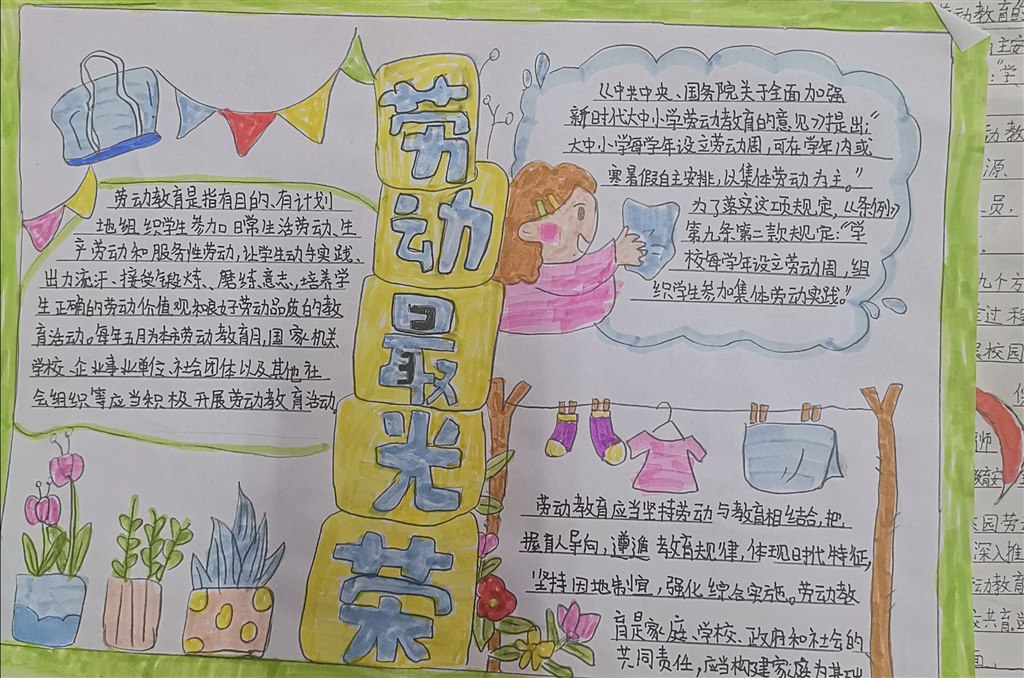 劳动最光荣
劳动教育是指有目的、有计划
地组织学生参加日常生活劳动、生
产劳动和服务性劳动，让学生动手实践、
出力流汗、接受锻炼、磨练意志，培养学
生正确的劳动价值观和良好劳动品质的教
育活动。每年五月为本市劳动教育月，国家机关、
学校、企业事业单位、社会团体以及其他社
会组织等应当积极开展劳动教育活动
《中共中央、国务院关于全面加强
新时代大中小学劳动教育的意见》提出：“
大中小学每学年设立劳动周，可在学年内或
寒暑假自主安排，以集体劳动为主。”
为了落实这项规定，《条例》
第九条第三款规定：“学
校每学年设立劳动周，组
织学生参加集体劳动实践。”
劳动教育应当坚持劳动与教育相结合，把
握育人导向，遵循教育规律，体现时代特征，
坚持因地制宜，强化综合实施。劳动教
育是家庭、学校、政府和社会的
共同责任，应当构建家庭为基础
劳动教育的
主安
：“学
动教
源、
员，
九个方
过程
校园
师
教育安
园劳
深入推
动教育
共育